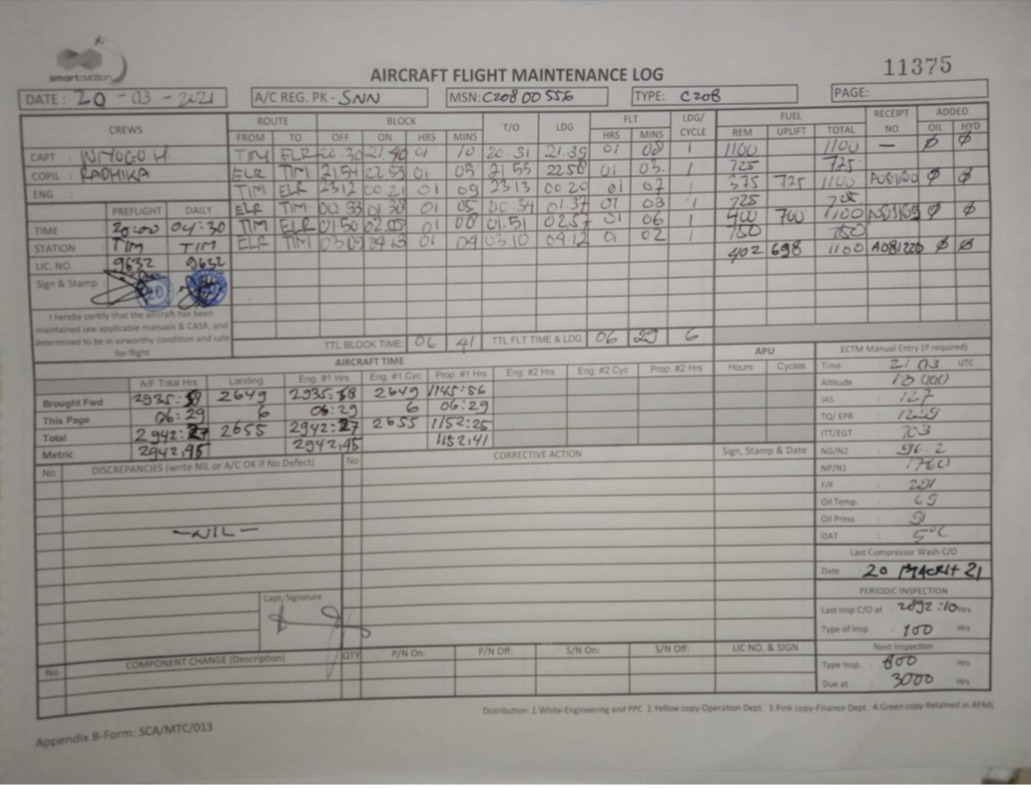 smartaviation
11375
AIRCRAFT FLIGHT MAINTENANCE LOG
DATE : 20 - 03 - 2021 A/C REG. PK - SNN MSN: C208 00 556 TYPE: C208 PAGE:
CREWS ROUTE BLOCK T/O LDG FLT LDG/ CYCLE FUEL RECEIPT NO ADDED
FROM TO OFF ON HRS MINS HRS MINS REM UPLIFT TOTAL OIL HYD
CAPT : TIM ELR 20.30 21.40 01 10 20.31 21.39 01 08 1 1100 1100 — Ø Ø
COPIL : RADHIKA ELR TIM 21.54 22.59 01 05 21.55 22.58 01 03 1 725 725
ENG : TIM ELR 23.12 00.21 01 09 23.13 00.20 01 07 1 375 725 1100 Ø Ø
PREFLIGHT DAILY ELR TIM 00.33 01.38 01 05 00.34 01.37 01 03 1 725
TIME : 20:00 04:30 TIM ELR 01.50 01 08 01.51 02.57 01 06 1 400 700 1100 Ø Ø
STATION : TIM TIM ELR TIM 03.09 04.13 01 04 03.10 04.12 01 02 1 750 750
LIC. NO. : 9632 9632 402 698 1100 A081220 Ø Ø
Sign & Stamp :
I hereby certify that the aircraft has been
maintained iaw applicable manuals & CASR, and
determined to be in airworthy condition and safe
for flight
TTL BLOCK TIME: 06 41 TTL FLT TIME & LDG: 06 29 6
AIRCRAFT TIME APU ECTM Manual Entry (if required)
A/F Total Hrs Landing Eng. #1 Hrs Eng. #1 Cyc Prop. #1 Hrs Eng. #2 Hrs Eng. #2 Cyc Prop. #2 Hrs Hours Cycles Time : 21.03 UTC
Brought Fwd 2935:58 2649 2935:58 2649 1145:56 Altitude : 13000
This Page 06:29 6 06:29 6 06:29 IAS : 127
Total 2942:27 2655 2942:27 2655 1152:25 TQ/ EPR :
Metric 2942,45 2942,45 1152,41 ITT/EGT : 703
No DISCREPANCIES (write NIL or A/C OK if No Defect) No CORRECTIVE ACTION Sign, Stamp & Date NG/N2 : 96.2
NP/N1 : 1760
F/F :
Oil Temp. : 69
— NIL — Oil Press : 91
OAT : 5°C
Last Compressor Wash C/O
Date : 20 MARCH 21
PERIODIC INSPECTION
Capt. Signature Last Insp C/O at : 2892:10 Hrs
Type of Insp : 100 Hrs
No COMPONENT CHANGE (Description) QTY P/N On: P/N Off: S/N On: S/N Off: LIC NO. & SIGN Next Inspection
Type Insp. : 800 Hrs
Due at : 3000 Hrs
Distribution: 1.White-Engineering and PPC 2.Yellow copy-Operation Dept. 3.Pink copy-Finance Dept. 4.Green copy-Retained in AFML
Appendix B-Form: SCA/MTC/013